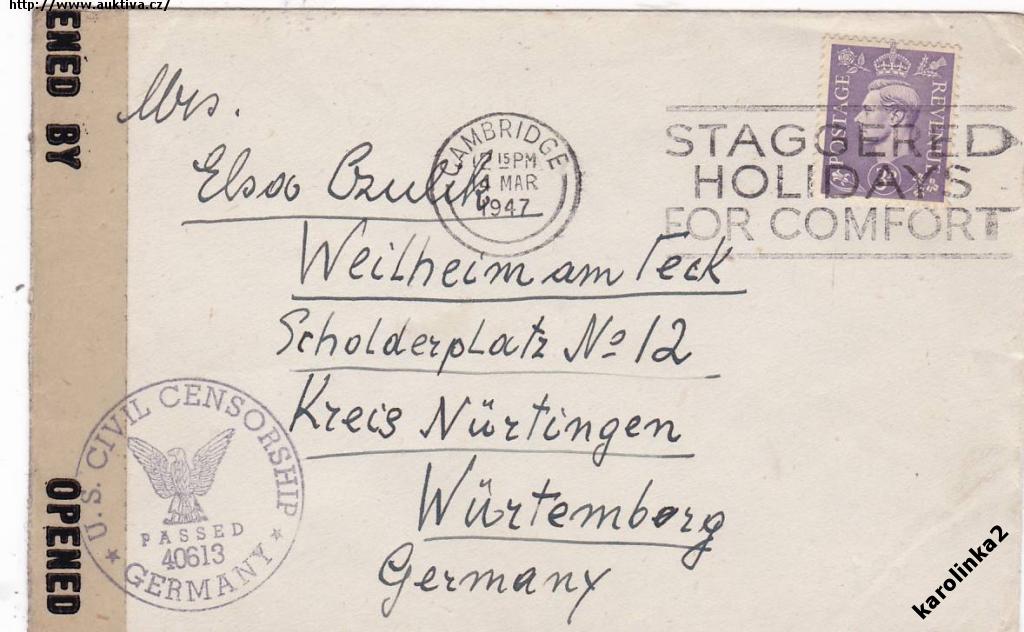 http://www.auktiva.cz/
OPENED
ENED BY
Mrs.
Elsa Czulik
Weilheim am Teck
Scholderplatz No 12
Kreis Nürtingen
Würtemberg
Germany
CAMBRIDGE
15 PM
4 MAR
1947
POSTAGE
REVENUE
STAGGERED
HOLIDAYS
FOR COMFORT
U.S. CIVIL CENSORSHIP
PASSED
40613
GERMANY
karolinka2